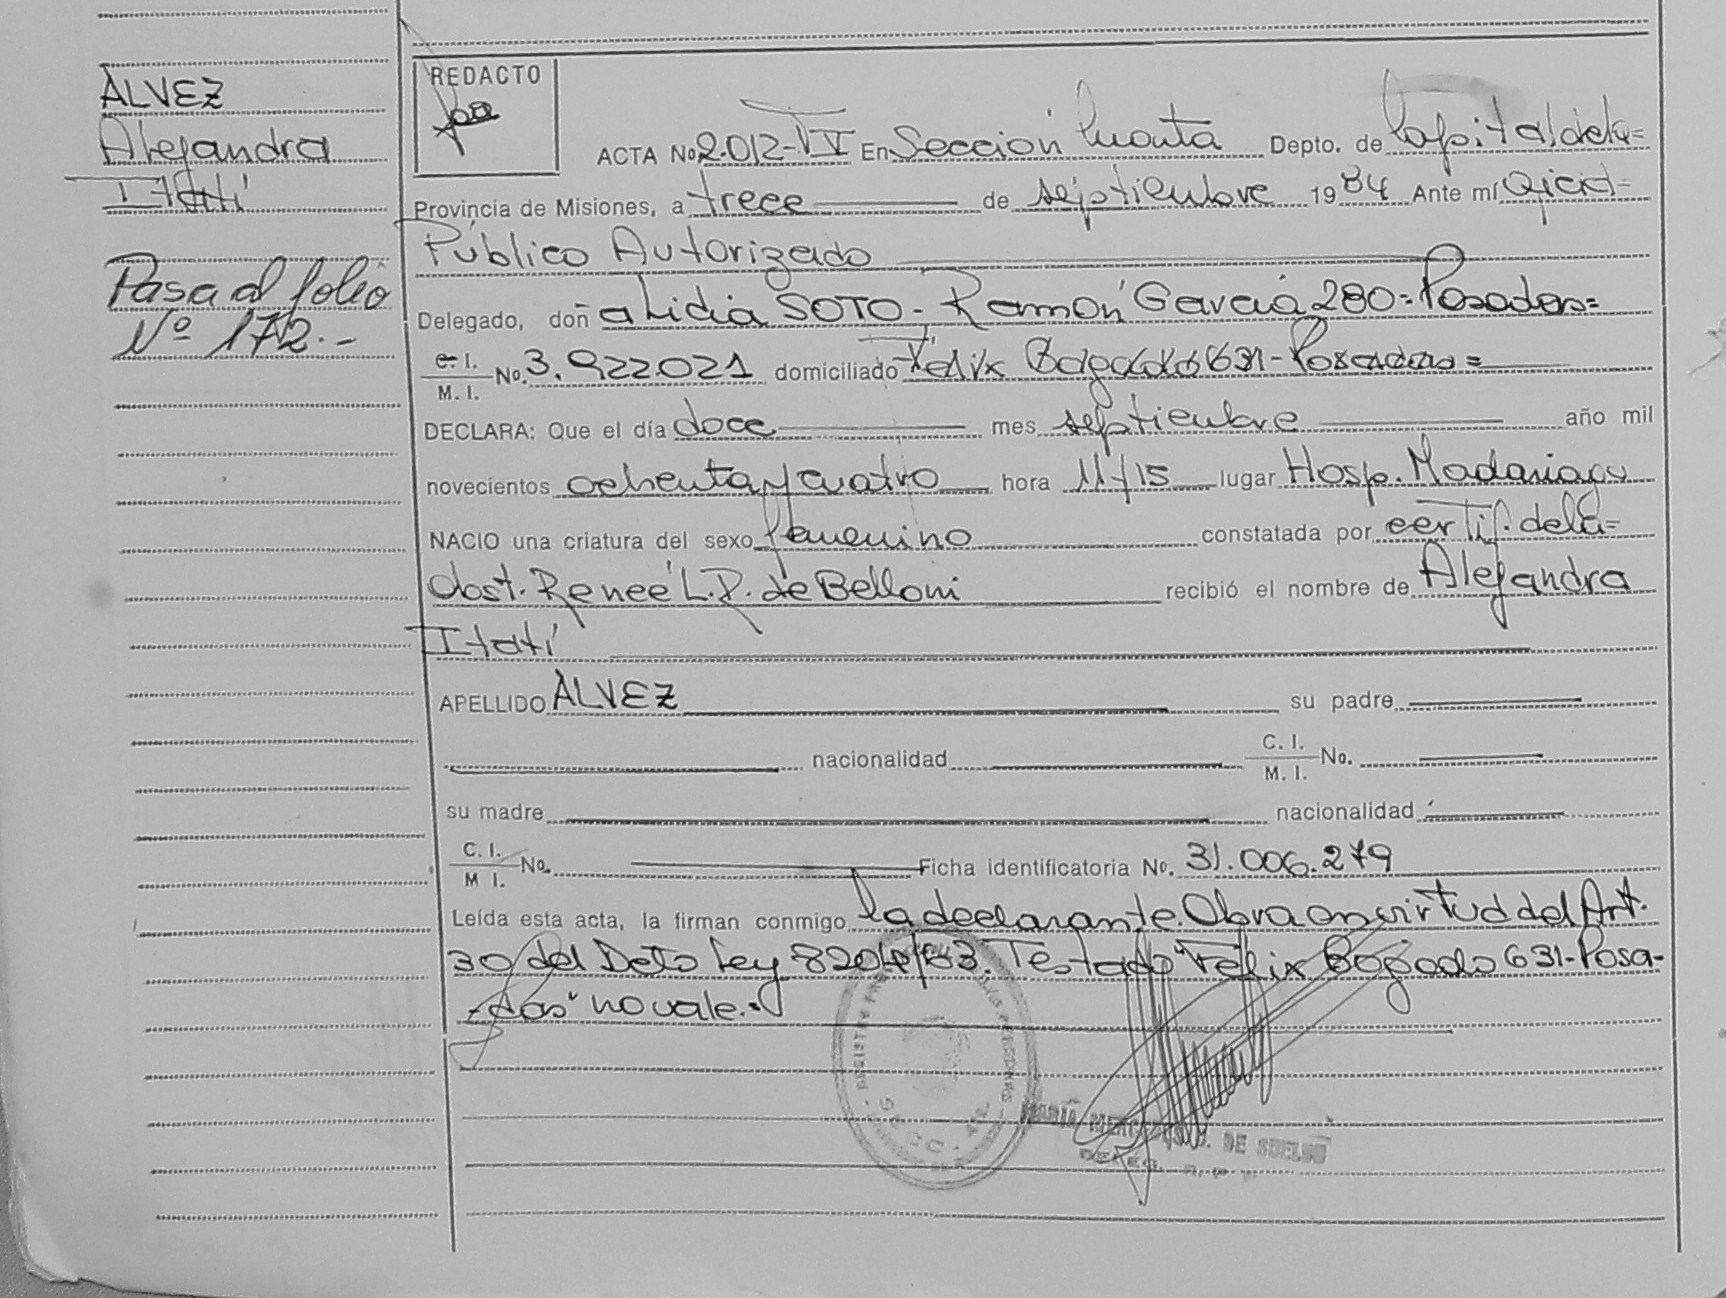 ALVEZ
Alejandra
Itatí
Pasa al folio
Nº 172.-
REDACTO
ACTA No 2.012-VI En Sección Cuarta Depto. de Capital de la=
Provincia de Misiones, a trece de septiembre 1984 Ante mí Oficial=
Público Autorizado
Delegado, doña Lidia SOTO - Ramón García 280=Posadas=
C. I.
M. I. No. 3.922021 domiciliado Félix Bogado 631-Posadas=
DECLARA: Que el día doce mes septiembre año mil
novecientos ochenta y cuatro hora 11/15 lugar Hosp. Madariaga
NACIO una criatura del sexo femenino constatada por certif. de la=
Obst. Reneé L.R. de Belloni recibió el nombre de Alejandra
Itatí
APELLIDO ALVEZ su padre
nacionalidad C. I.
M. I. No.
su madre nacionalidad
C. I.
M I. No. Ficha identificatoria No. 31.006.279
Leída esta acta, la firman conmigo la declarante. Obra en virtud del Art.
30 del Deto Ley 8204/63. Testado "Félix Bogado 631-Posa-
-das" no vale.-
SECC. 4ta.
DE SUELDO